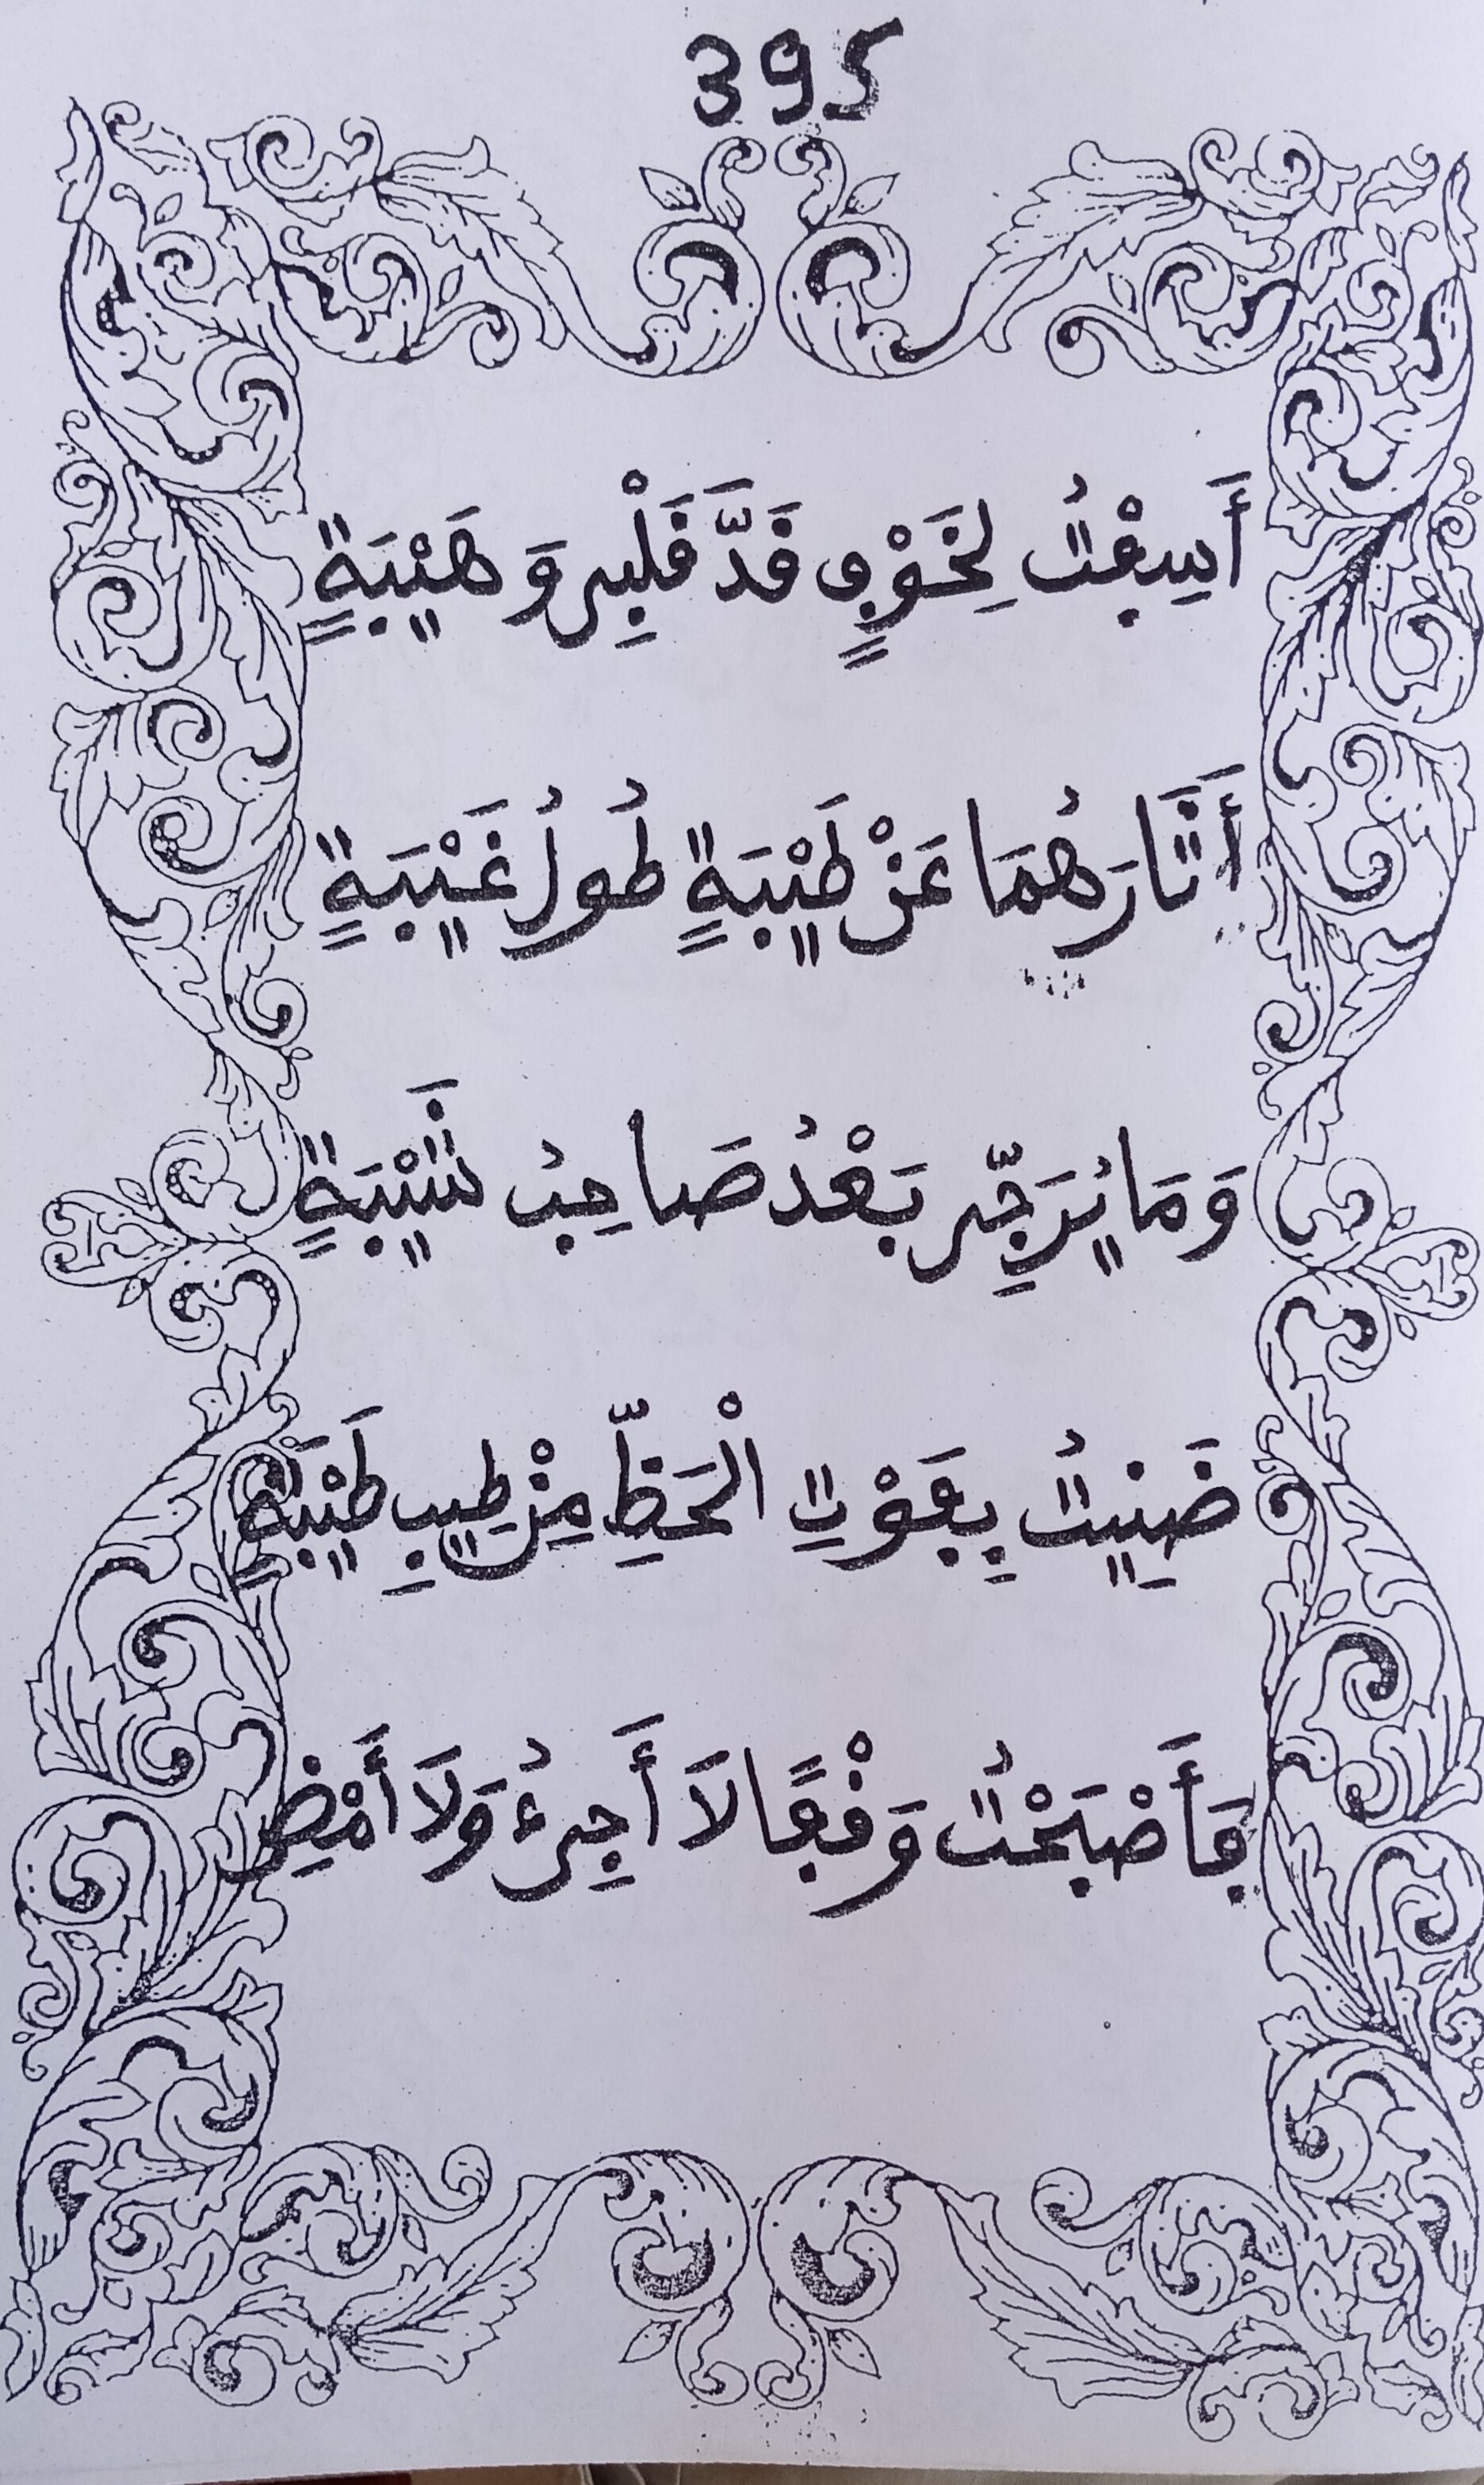 395
أَسِفْتُ لِخَوْفٍ قَدَّ قَلْبِي وَهَيْبَةٍ
أَثَارَهُمَا عَنْ طَيْبَةٍ طُولُ غَيْبَةٍ
وَمَا يُرَجِّي بَعْدُ صَاحِبُ شَيْبَةٍ
ضَنِيتُ بِفَوْتِ الْحَظِّ مِنْ طِيبِ طَيْبَةٍ
فَأَصْبَحْتُ وَقْفًا لَا أَجِيءُ وَلَا أَمْضِي